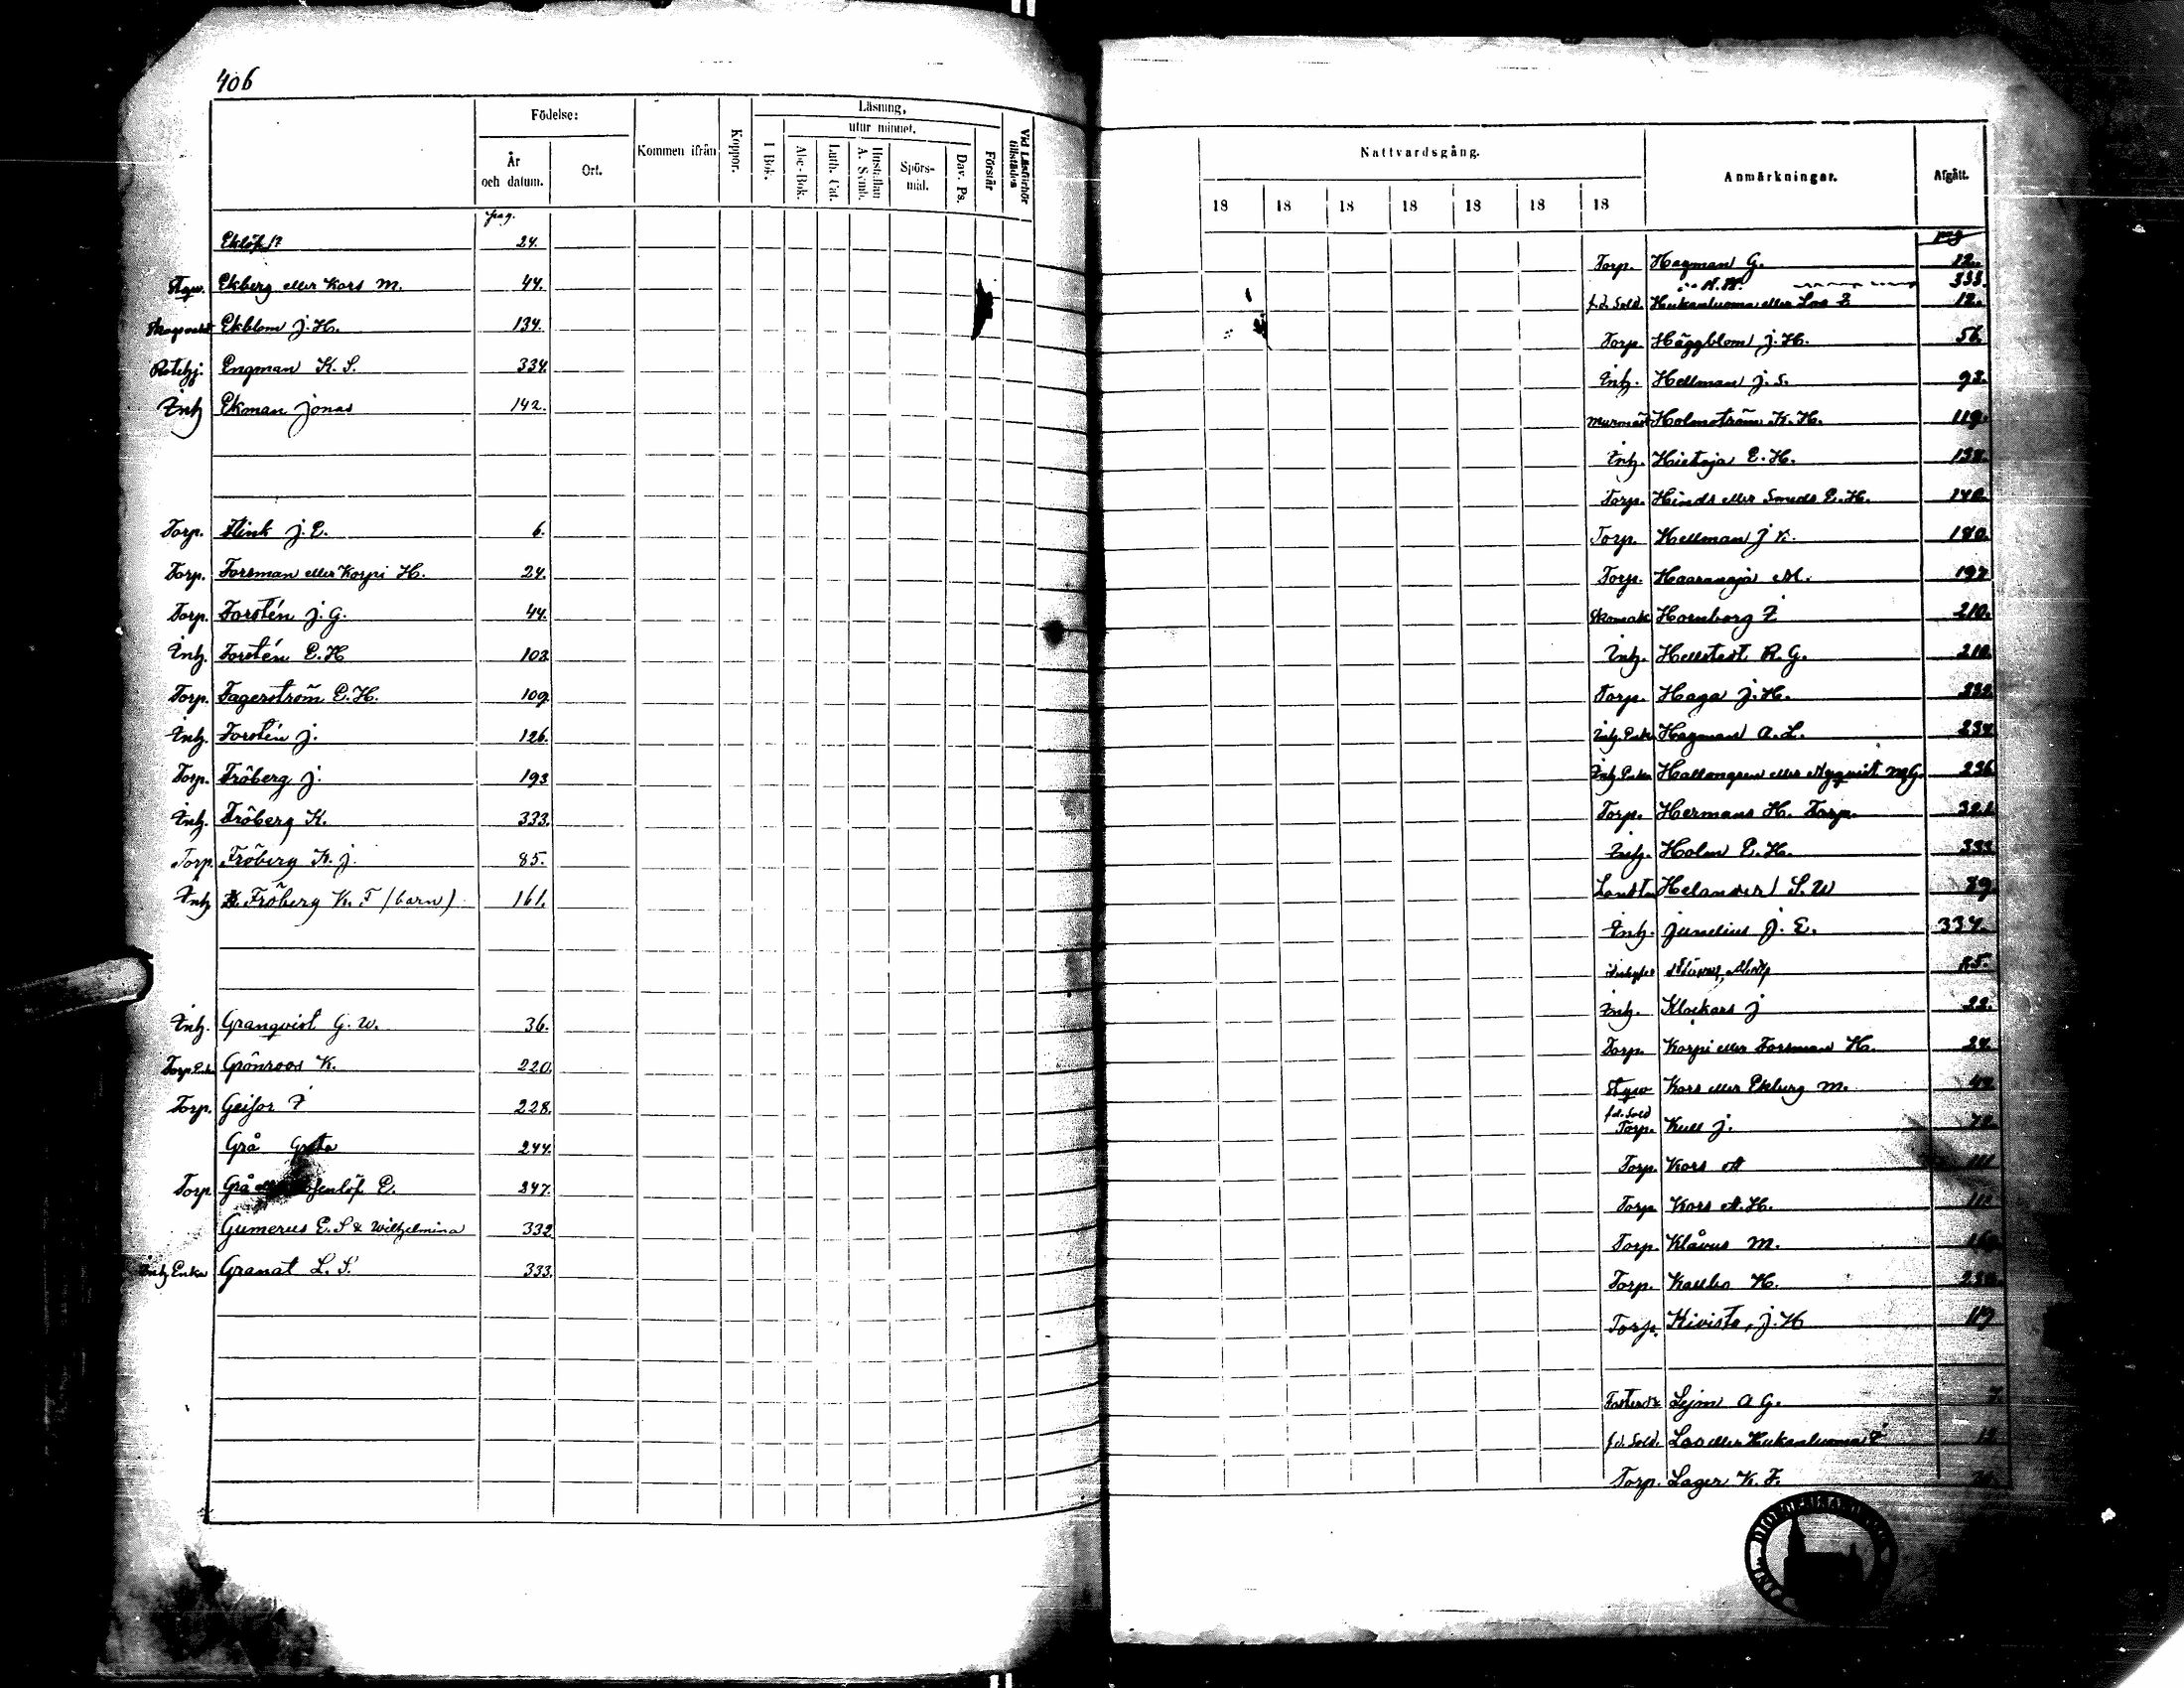 406
Födelse:
År och datum.
Ort.
Kommen ifrån
Koppor.
Läsning,
I Bok.
utur minnet.
Abc-Bok.
Luth. Cat.
Hustaflan A. Symb.
Spörs-mål.
Dav. Ps.
Förstår
Vid Läsförhör tillstädes
pag.
Eklöf 24.
Ekberg eller Kars M. 44.
Ekblom J. H. 134.
Engman K. S. 334.
Inh Ekman Jonas 142.
Torp. Flink J. E. 6.
Torp. Forsman eller Korpi H. 24.
Torp. Forstén J. G. 44.
Inh. Forstén E. H 102.
Torp. Fagerström E. H. 109.
Inh. Forstén J. 126.
Torp. Fröberg J. 193
Inh. Fröberg K. 333.
Torp. Fröberg K. J. 85.
Inh Fröberg K. F (barn) 161.
Inh. Granqvist G. W. 36.
Torp. Enka Grönroos K. 220.
Torp. Geisor I 228.
Grå Greta 244.
Torp Grå 247.
Gumerus E. S & Wilhelmina 332.
Inh Enka Granat L. S. 333.
Nattvardsgång.
Anmärkningar.
Afgått.
18 18 18 18 18 18 18
Torp. Hagman G. 12.
333.
f.d. Sold. 12.
Torp. Häggblom J. H. 56.
Inh. Hellman J. S. 93.
Holmström K. H. 119.
Inh. Hietoja E. H. 138.
Torp. Hinds eller Smeds E. H. 140.
Torp. Hellman J K. 180.
Torp. Haaranoja M. 197
Skomak Hornborg I 210.
Inh. Hellstedt R. G. 210.
Torp. Haga J. H. 232.
Inh. Enka Hagman A. L. 234
Inh Enka Hallongren eller Nyqvist M. G. 236
Torp. Hermans H. Torp. 321.
Inh. Holm E. H. 333.
Helander S. W 89.
Inh. Junelius J. E. 334.
85.
Inh. Klockars J 22.
Torp. Korpi eller Forsman H. 24.
Kars eller Ekberg M. 44
f.d. Sold
Torp. Kull J. 72.
Torp. Kors A 111
Torp Kors A. H. 111.
Torp. Klåvus M. 160
Torp. Kauko H. 230.
Torp. Kivisto, J. H 119
Lejon A G. 7.
f.d. Sold. 12
Torp. Lager K. F.